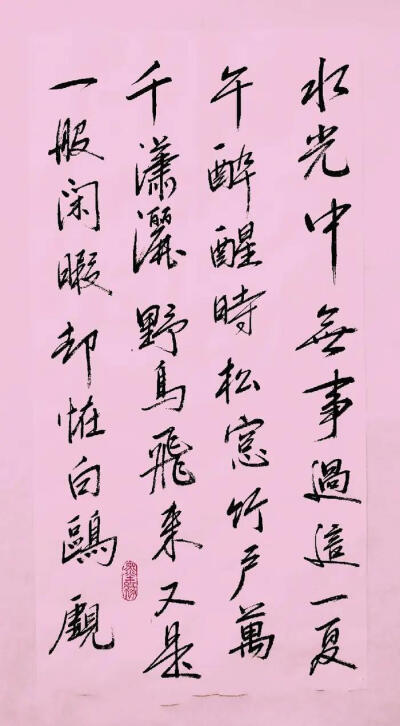 水光中無事過這一夏
午醉醒時松窓竹户萬
千瀟灑野鳥飛来又是
一般闲暇却恠白鷗覷